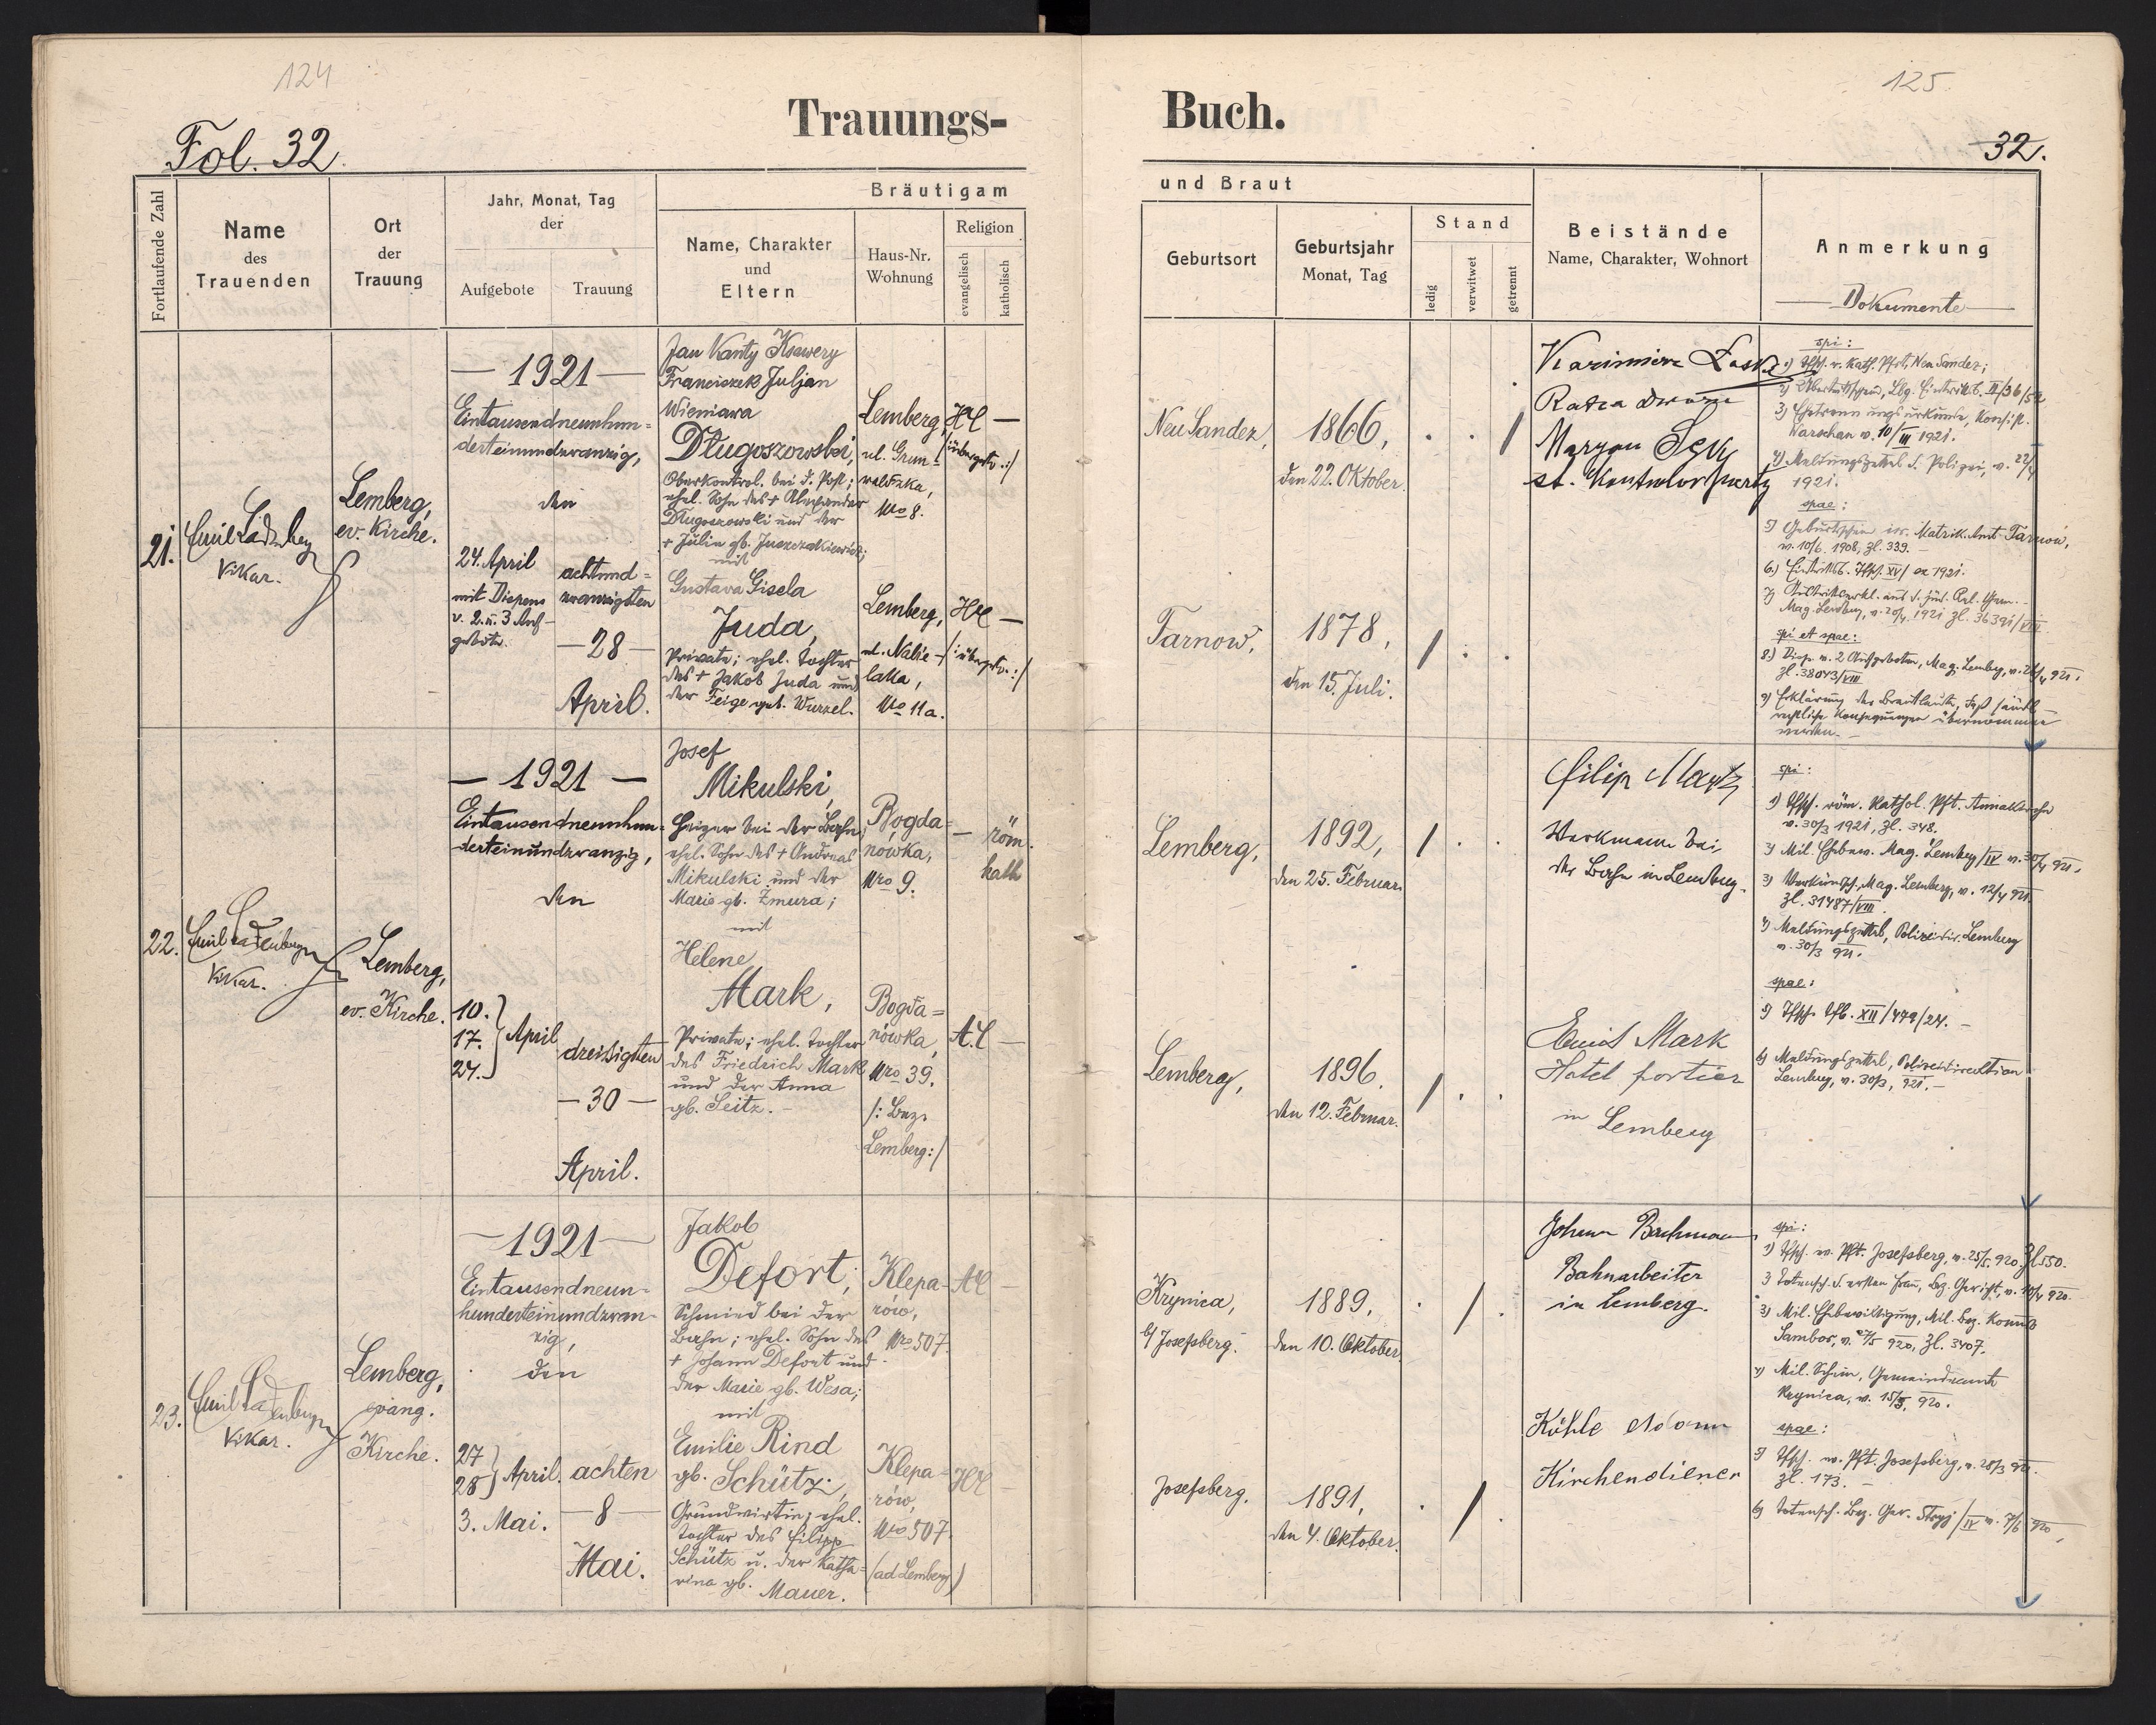 124
125
Trauungs-
Buch.
Fol. 32.
32.
Fortlaufende Zahl
Name
des
Trauenden
Ort
der
Trauung
Jahr, Monat, Tag
der
Aufgebote
Trauung
Bräutigam
Name, Charakter
und
Eltern
Haus-Nr.
Wohnung
Religion
evangelisch
katholisch
und Braut
Geburtsort
Geburtsjahr
Monat, Tag
Stand
ledig
verwitwet
getrennt
Beistände
Name, Charakter, Wohnort
Anmerkung
Dokumente
21.
Emil Ladenberger
Vikar.
Lemberg,
ev. Kirche.
— 1921 —
Eintausendneunhun=
derteinundzwanzig,
den
24. April
mit Dispens
v. 2. u. 3 Auf-
gebote.
achtund=
zwanzigsten
— 28 —
April.
Jan Kanty Ksawery
Franciszek Juljan
Wieniawa
Długoszowski,
Oberkontrol. bei d. Post;
ehel. Sohn des + Alexander
Długoszowski und der
+ Julia gb. Juszczakiewicz;
mit
Gustava Gisela
Juda,
Private; ehel. Tochter
des + Jakob Juda und
der Feige geb. Wurzel.
Lemberg,
ul. Grun=
waldzka,
Nro 8.
Lemberg,
ul. Nabie-
laka,
Nro 11a.
HC —
HC —
Neu Sandez,
1866,
den 22. Oktober.
Tarnow,
1878,
den 15. Juli.
Kazimierz
Radca dworu
Maryan
spi:
1) Tfsch. v. kath. Pfrt, Neu Sandez;
3) Ehetrennungsurkunde, Konsist.
Warschau v. 10/III 1921.
4) Meldungszettel d. Polizei, v. 22/4
1921.
spae:
5) Geburtsschein isr. Matrik. Amt Tarnow,
v. 10/6. 1908, Zl. 339. —
Mag. Lemberg, v. 20/4 1921 Zl. 36391/VIII
spi et spae:
8.) Disp. v. 2 Aufgeboten, Mag. Lemberg, v. 26/4 921.
Zl. 38043/VIII
9) Erklärung der Brautleute, daß sämtl.
rechtliche Konsequenzen übernommen
werden. —
22.
Emil Ladenberger
Vikar.
Lemberg,
ev. Kirche.
— 1921 —
Eintausendneunhun-
derteinundzwanzig,
den
10.
17.
24.
April
dreißigsten
— 30 —
April.
Josef
Mikulski,
Heizer bei der Bahn,
ehel. Sohn des + Andreas
Mikulski und der
Marie gb. Żmura;
mit
Helene
Mark,
Private; ehel. Tochter
des Friedrich Mark
und der Anna
gb. Seitz. —
Bogda=
nówka,
Nro 9.
Bogda=
nówka,
Nro 39.
/: Bez.
Lemberg :/
— röm.
kath
A.C —
Lemberg,
1892,
den 25. Februar.
Lemberg,
1896.
den 12. Februar.
Filip Mark
Werkmann bei
der Bahn in Lemberg.
Emil Mark
Hotel portier
in Lemberg
spi:
1) Tfsch. röm. kathol. Pft. Annakirche
v. 30/3 1921, Zl. 348.
3) Verkündsch. Mag. Lemberg, v. 12/4 921
Zl. 31487/VIII.
4) Meldungszettel, Polizeidir. Lemberg
v. 30/3 921.
spae:
5) Tfsch. Tfb. XII/479/24. —
6) Meldungszettel, Polizeidirektion
Lemberg, v. 30/3, 921. —
23.
Emil Ladenberger
Vikar.
Lemberg,
evang.
Kirche.
— 1921 —
Eintausendneun-
hunderteinundzwan-
zig,
den
27
28
April.
3. Mai.
achten
— 8 —
Mai.
Jakob
Defort,
Schmied bei der
Bahn; ehel. Sohn des
+ Johann Defort und
der Marie gb. Wesa;
mit
Emilie Rind
gb. Schütz,
Grundwirtin; ehel.
Tochter des Filipp
Schütz u. der Katha=
rina gb. Mauer.
Klepa-
rów,
Nro 507.
Klepa=
rów,
Nro 507.
(ad Lemberg)
AC —
HC —
Krynica,
b/ Josefsberg.
1889,
den 10. Oktober.
Josefsberg.
1891,
den 4. Oktober.
Johann Bachmann,
Bahnarbeiter
in Lemberg.
Köhle Adam
Kirchendiener
spi:
1) Tfsch. ev. Pft. Josefsberg, v. 25/5. 920, Zl 550.
3) Mil. Ehebewilligung, Mil. Bez. Komdo
Sambor, v. 27/5 920, Zl. 3407.
4) Mil. Schein, Gemeindeamt
Krynica, v. 15/5, 920.
spae:
5) Tfsch. ev. Pft. Josefsberg, v. 28/3 921.
Zl. 173. —
6) Totensch. Bez. Ger. Stryj/IV v. 7/6 920